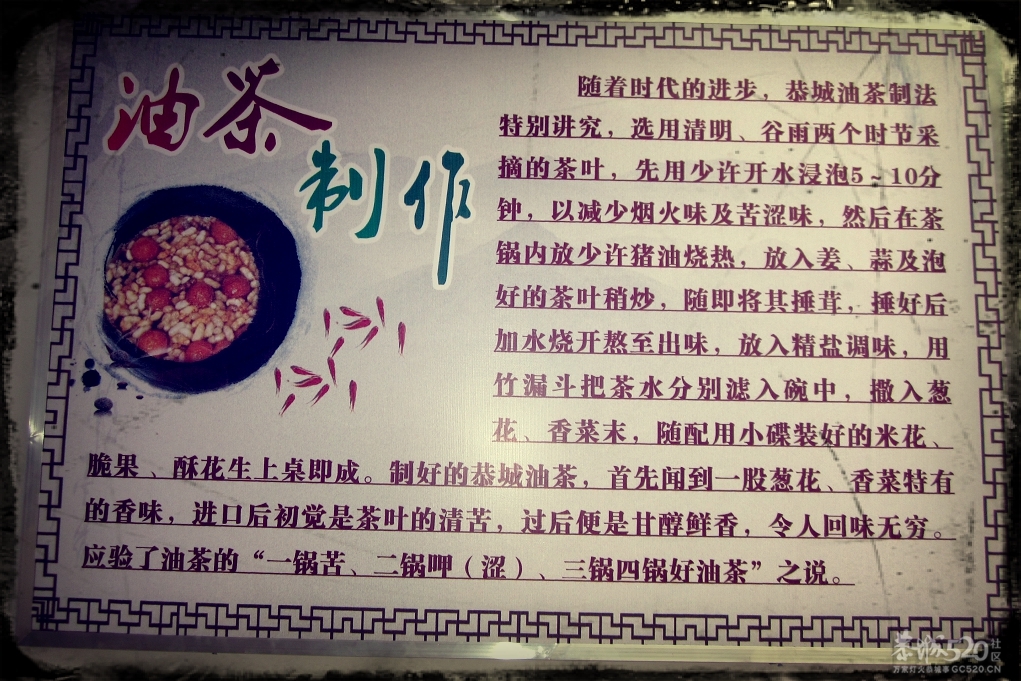 油茶
制作
随着时代的进步，恭城油茶制法
特别讲究，选用清明、谷雨两个时节采
摘的茶叶，先用少许开水浸泡5~10分
钟，以减少烟火味及苦涩味，然后在茶
锅内放少许猪油烧热，放入姜、蒜及泡
好的茶叶稍炒，随即将其捶茸，捶好后
加水烧开熬至出味，放入精盐调味，用
竹漏斗把茶水分别滤入碗中，撒入葱
花、香菜末，随配用小碟装好的米花、
脆果、酥花生上桌即成。制好的恭城油茶，首先闻到一股葱花、香菜特有
的香味，进口后初觉是茶叶的清苦，过后便是甘醇鲜香，令人回味无穷。
应验了油茶的“一锅苦、二锅呷（涩）、三锅四锅好油茶”之说。
恭城520社区
万家灯火恭城事GC520.CN